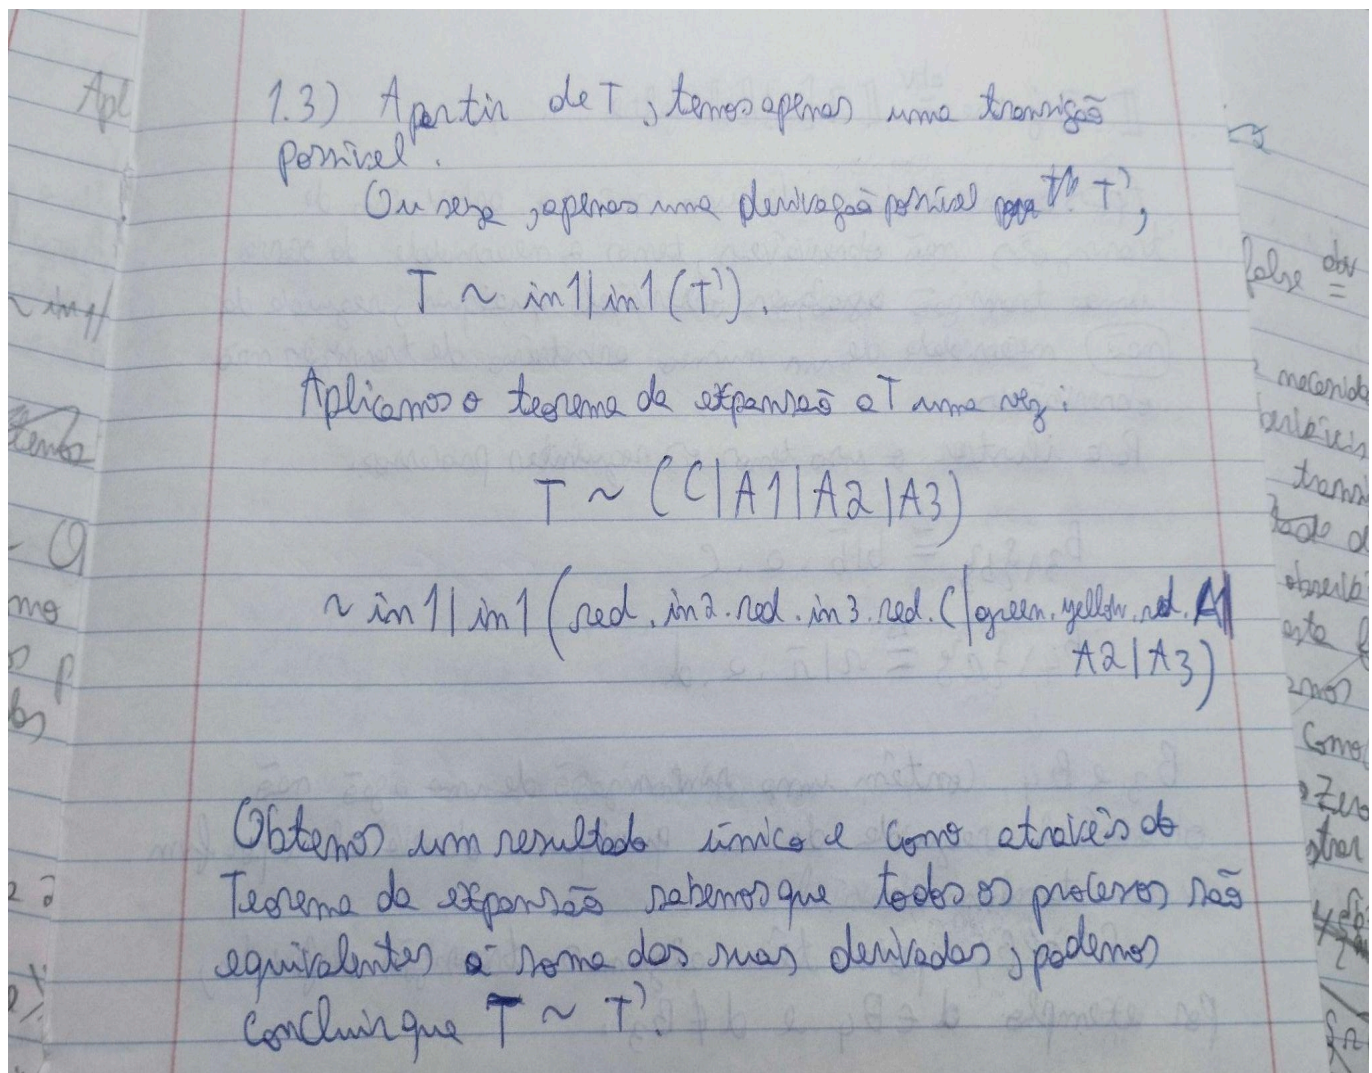 Apl
1.3) A partir de T, temos apenas uma transição
possível.
Ou seja, apenas uma derivação possível T',
T ~ in1|in1 (T').
Aplicamos o teorema da expansão a T uma vez:
T ~ (C|A1|A2|A3)
~ in1|in1 (red.in2.red.in3.red.C|green.yellow.red.A1|
A2|A3)
Obtemos um resultado único e como através do
Teorema da expansão sabemos que todos os processos são
equivalentes à soma das suas derivadas, podemos
concluir que T ~ T'.
~ in1|
temos
mo
false obv
=
transi
Como